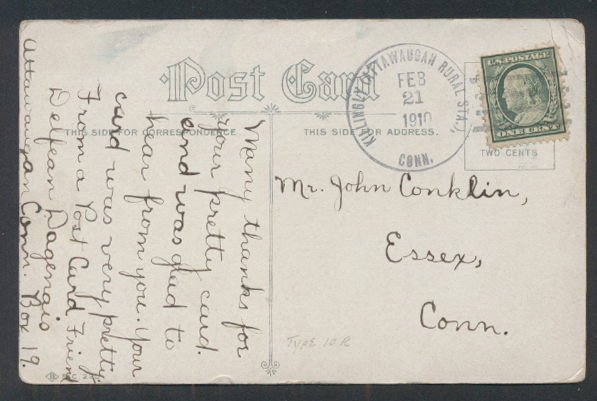 Post Card
THIS SIDE FOR CORRESPONDENCE.
THIS SIDE FOR ADDRESS.
KILLINGLY (ATTAWAUGAN RURAL STA.),
FEB
21
1910
CONN.
U.S. POSTAGE
ONE CENT
TWO CENTS
Many thanks for
your pretty card.
and was glad to
hear from you. Your
card was very pretty.
From a Post Card Friend
Delfean Dagenais
Attawaugan Conn. Box 19.
Mr. John Conklin,
Essex,
Conn.
TYPE 10K